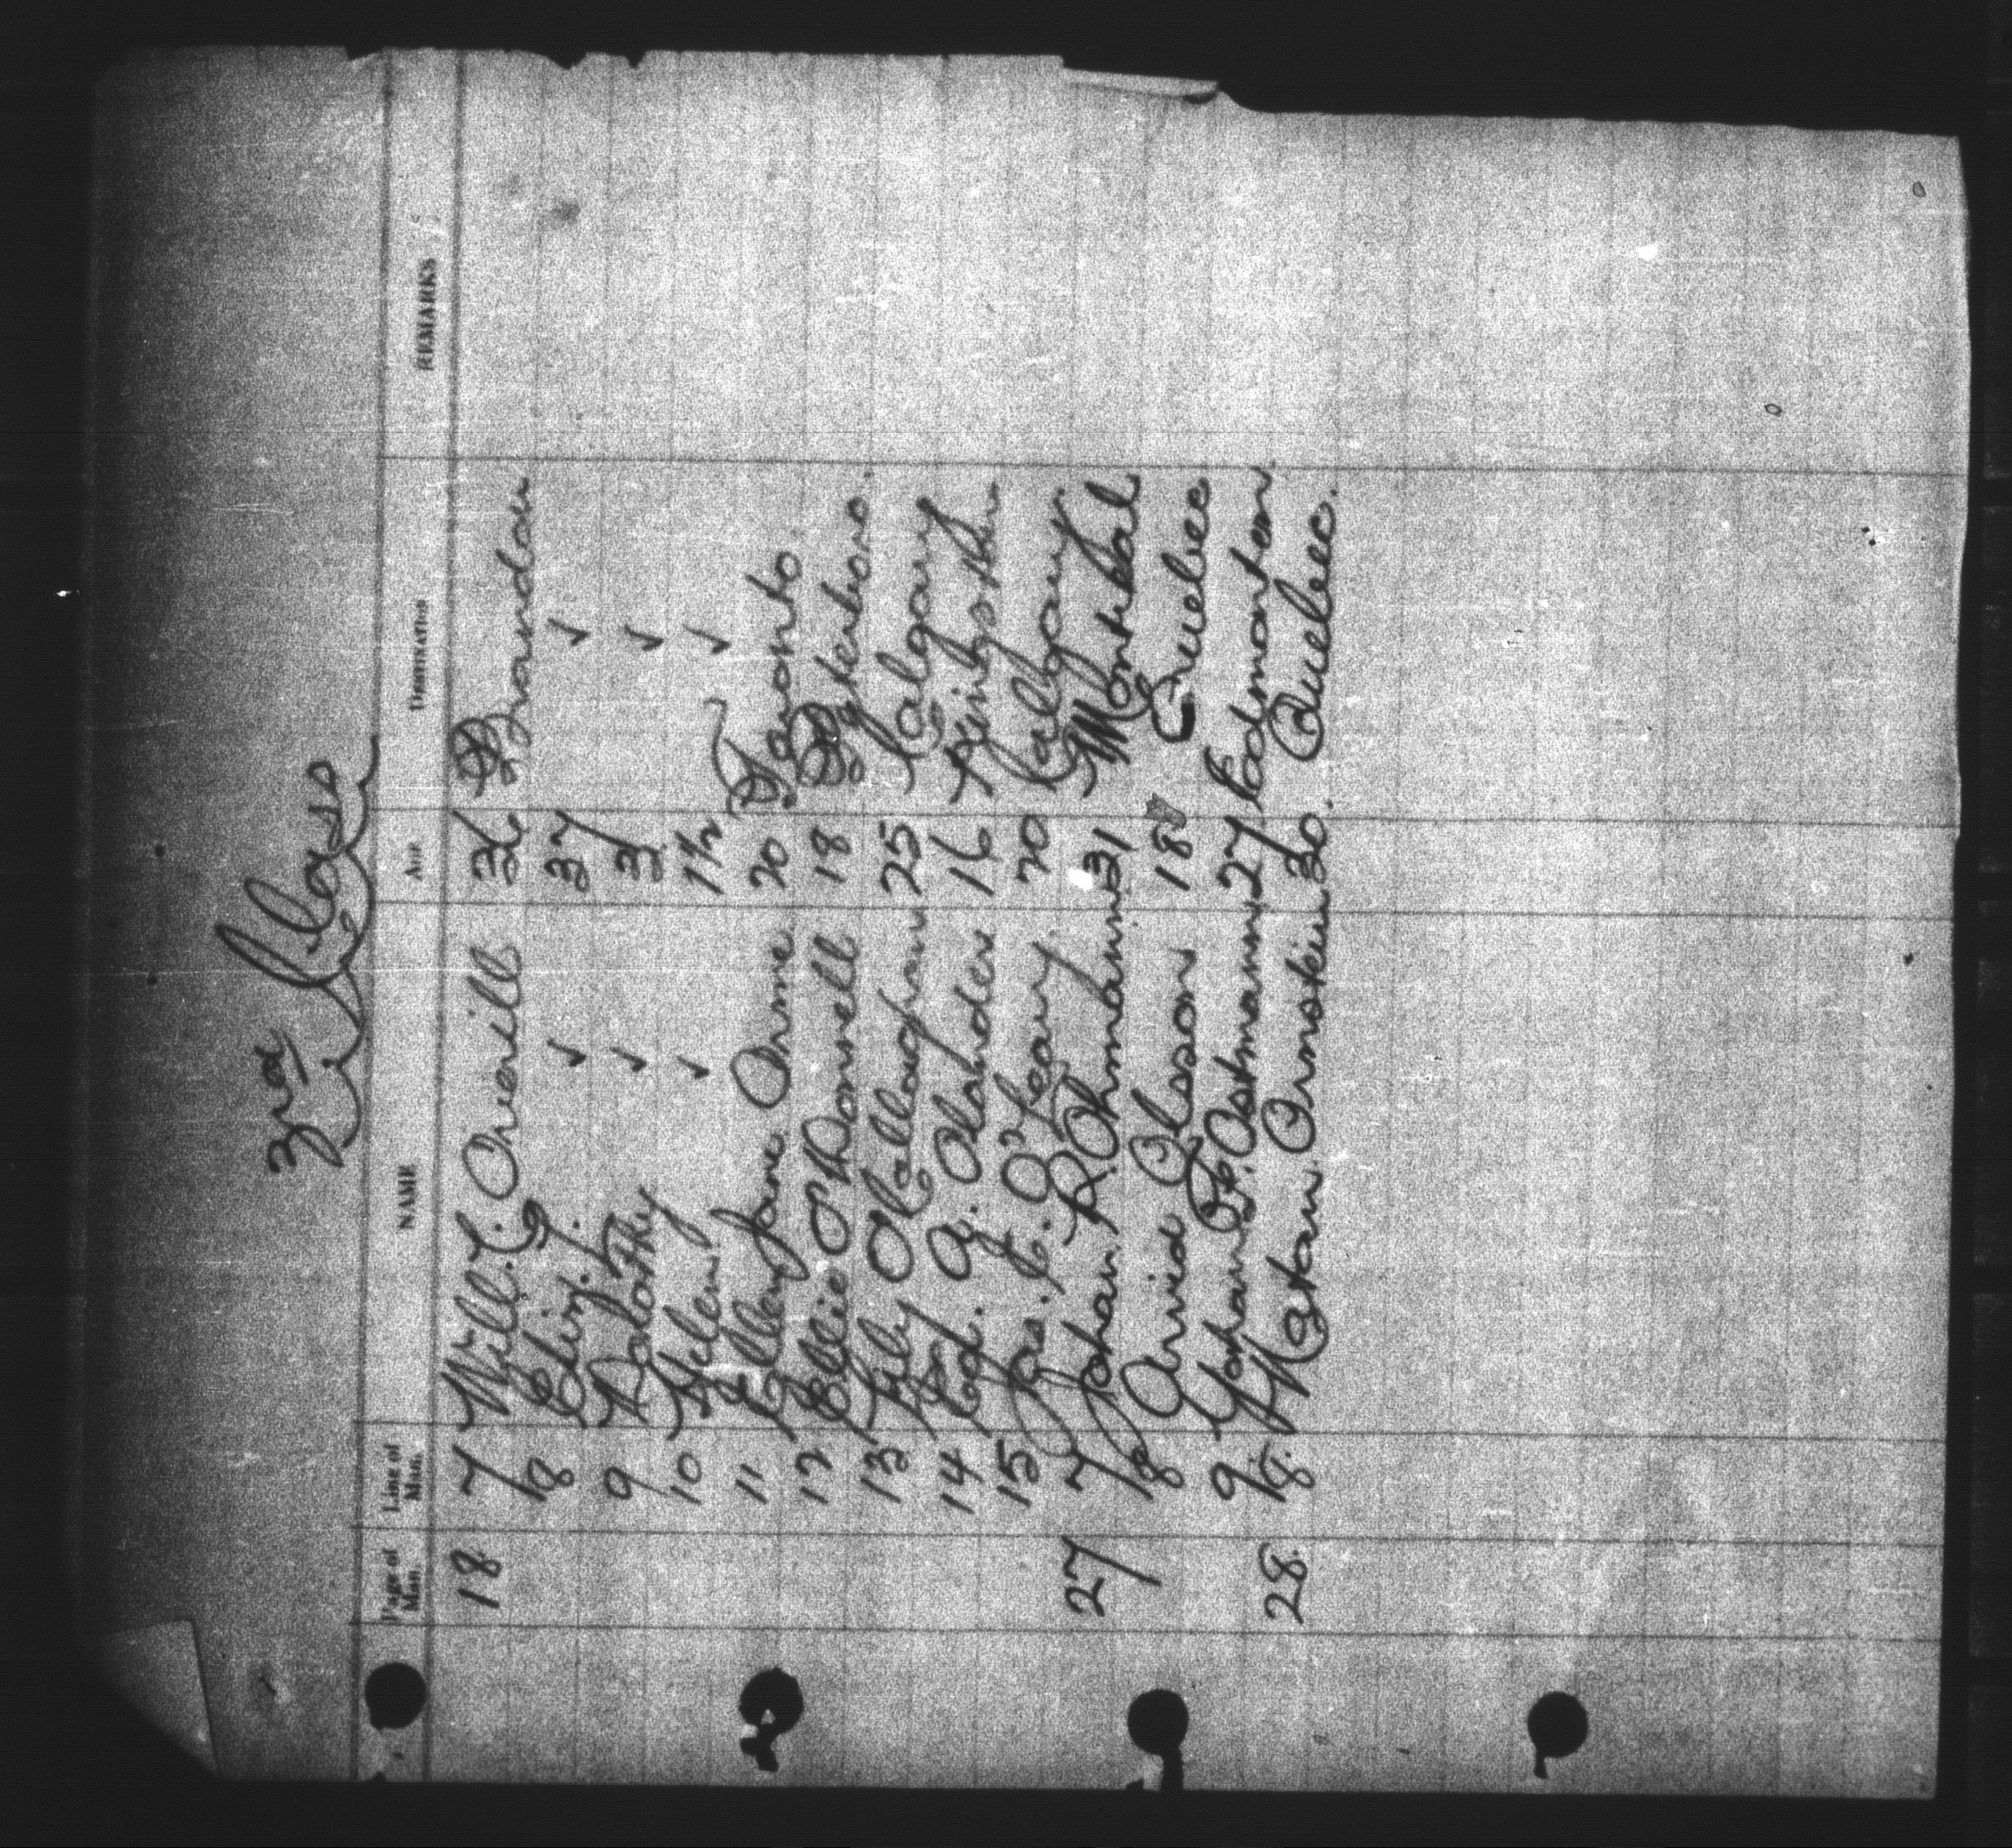 3rd Class
Page of Man. Line of Man. NAME AGE DESTINATION REMARKS
18 7 Will. C. Overill 36 Brandon
8 Eliz. ✓ 37 ✓
9 Dorothy ✓ 3 ✓
10 Helen ✓ 1½ ✓
11 Ellen Jane Orme 20 Toronto.
12 Ellie O'Donnell 18
13 Lily O'Callaghan 25 Calgary
14 Ed. G. Olander 16 Kingston
15 Jas. C. O'Leary 20 Calgary
27 7 Johan R. Ohmann 31 Montreal
8 Arvid Olsson 18 Quebec
9 Johan Ostmann 27 Edmonton
28. 18. Natan Ornstein 30. Quebec.